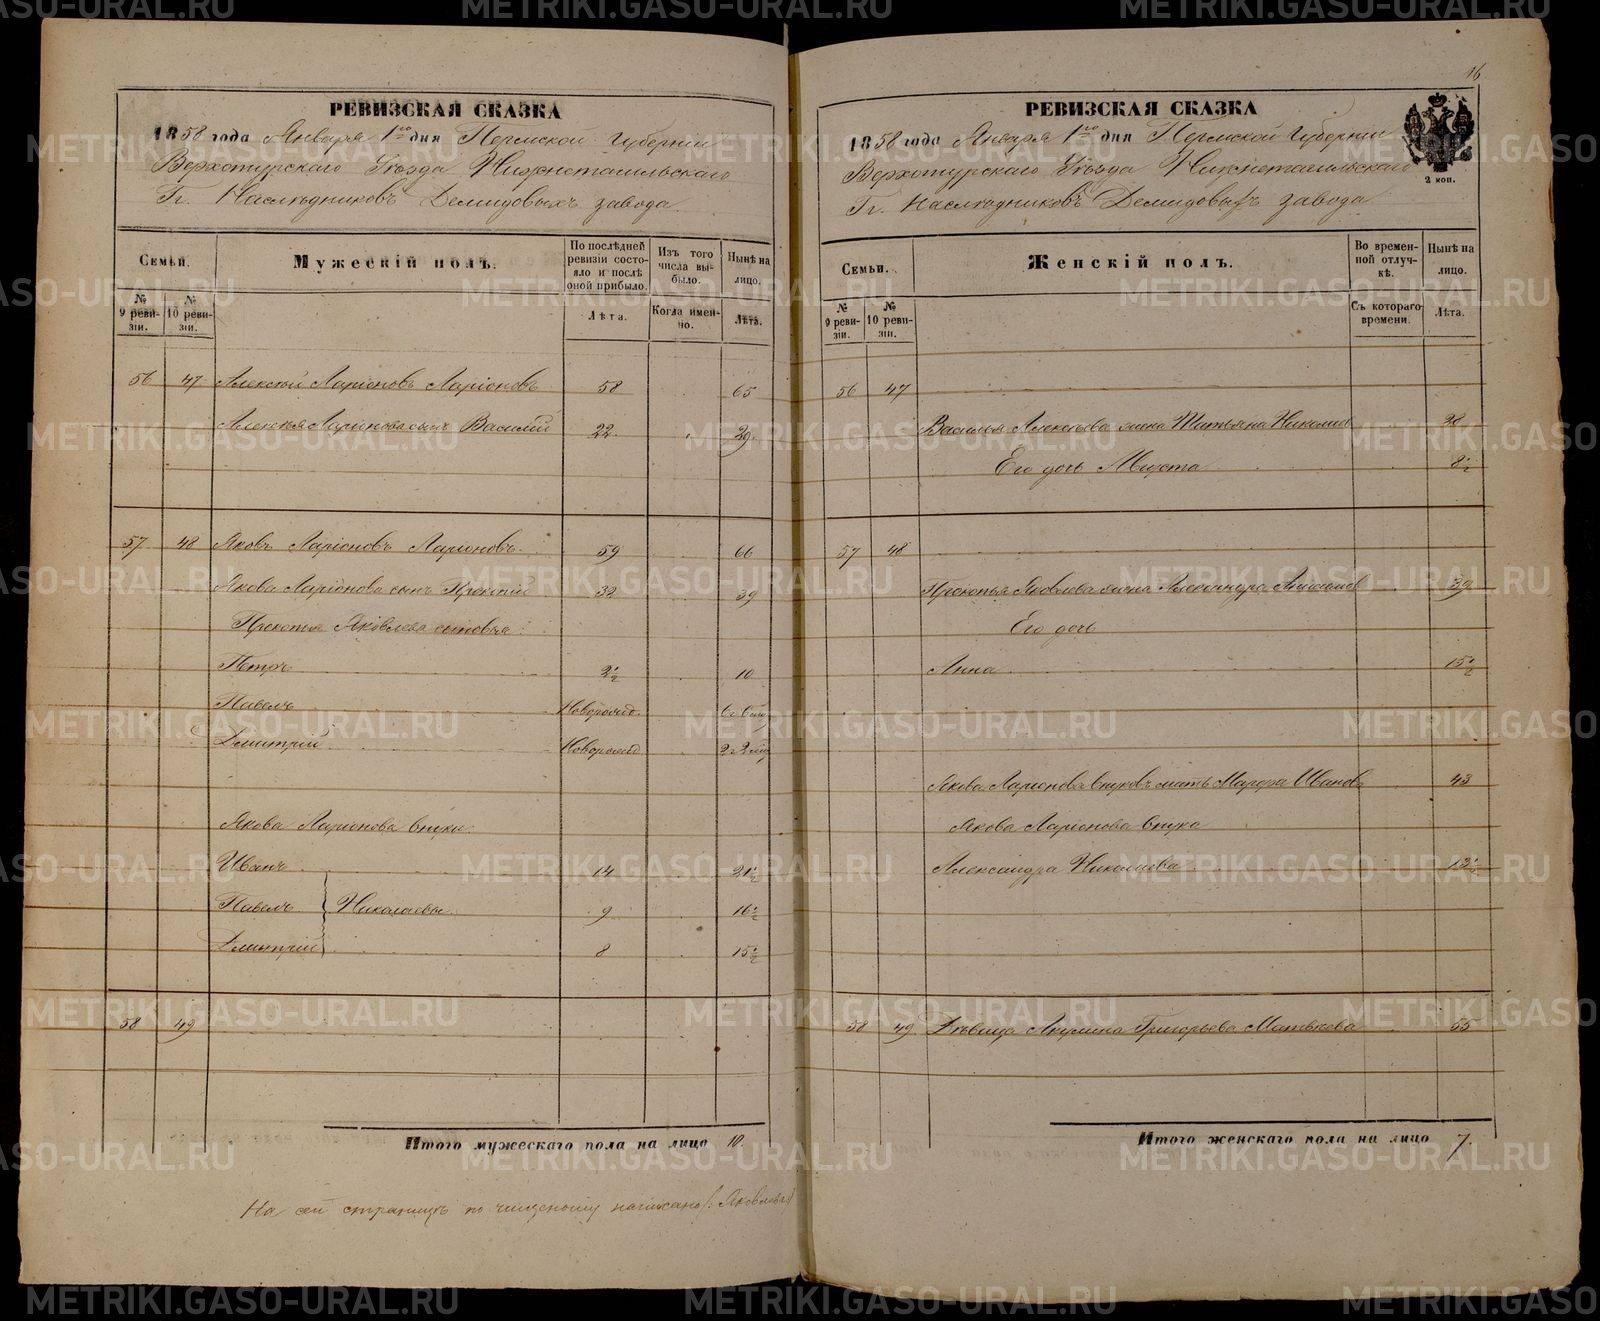 16
РЕВИЗСКАЯ СКАЗКА
1858 года Января 1го дня Пермской губернии
Верхотурскаго Уѣзда Нижнетагильскаго
Гг. Наслѣдниковъ Демидовыхъ завода
Семьи.
Мужескій полъ.
По послѣдней ревизіи состояло и послѣ оной прибыло.
Изъ того числа выбыло.
Нынѣ на лицо.
№ 9 ревизіи.
№ 10 ревизіи.
Лѣта.
Когда именно.
Лѣта.
56 47 Алексѣй Ларіоновъ Ларіоновъ 58 65
Алексѣя Ларіонова сынъ Василій 22. 29.
57 48 Яковъ Ларіоновъ Ларіоновъ 59 66
Якова Ларіонова сынъ Прокопій 32 39
Прокопья Яковлева сыновья
Петръ 2½ 10
Павелъ Новорожд.
Дмитрій Новорожд
Якова Ларіонова внуки
Иванъ 14 21½
Павелъ Николаевы 9 16½
Дмитрій 8 15½
58 49
Итого мужескаго пола на лицо 10.
На сей страницѣ по чищеному написано /: Яковлева
РЕВИЗСКАЯ СКАЗКА
1858 года Января 1го дня Пермской губерніи
Верхотурскаго Уѣзда Нижнетагильскаго
Гг. Наслѣдниковъ Демидовыхъ завода
2 коп.
Семьи.
Женскій полъ.
Во временной отлучкѣ.
Нынѣ на лицо.
№ 9 ревизіи.
№ 10 ревизіи.
Съ котораго времени.
Лѣта.
56 47
Василья Алексѣева жена Татьяна Никола 28
Его дочь Августа 8½
57 48
Прокопья Яковлева жена Александра 39
Его дочь
Анна 15½
Якова Ларіонова внуковъ мать Марфа Иванов 43
Якова Ларіонова внука
Александра Николаева 12½
58 49 Дѣвица Акулина Григорьева Матвѣева 55
Итого женскаго пола на лицо 7.
METRIKI.GASO-URAL.RU